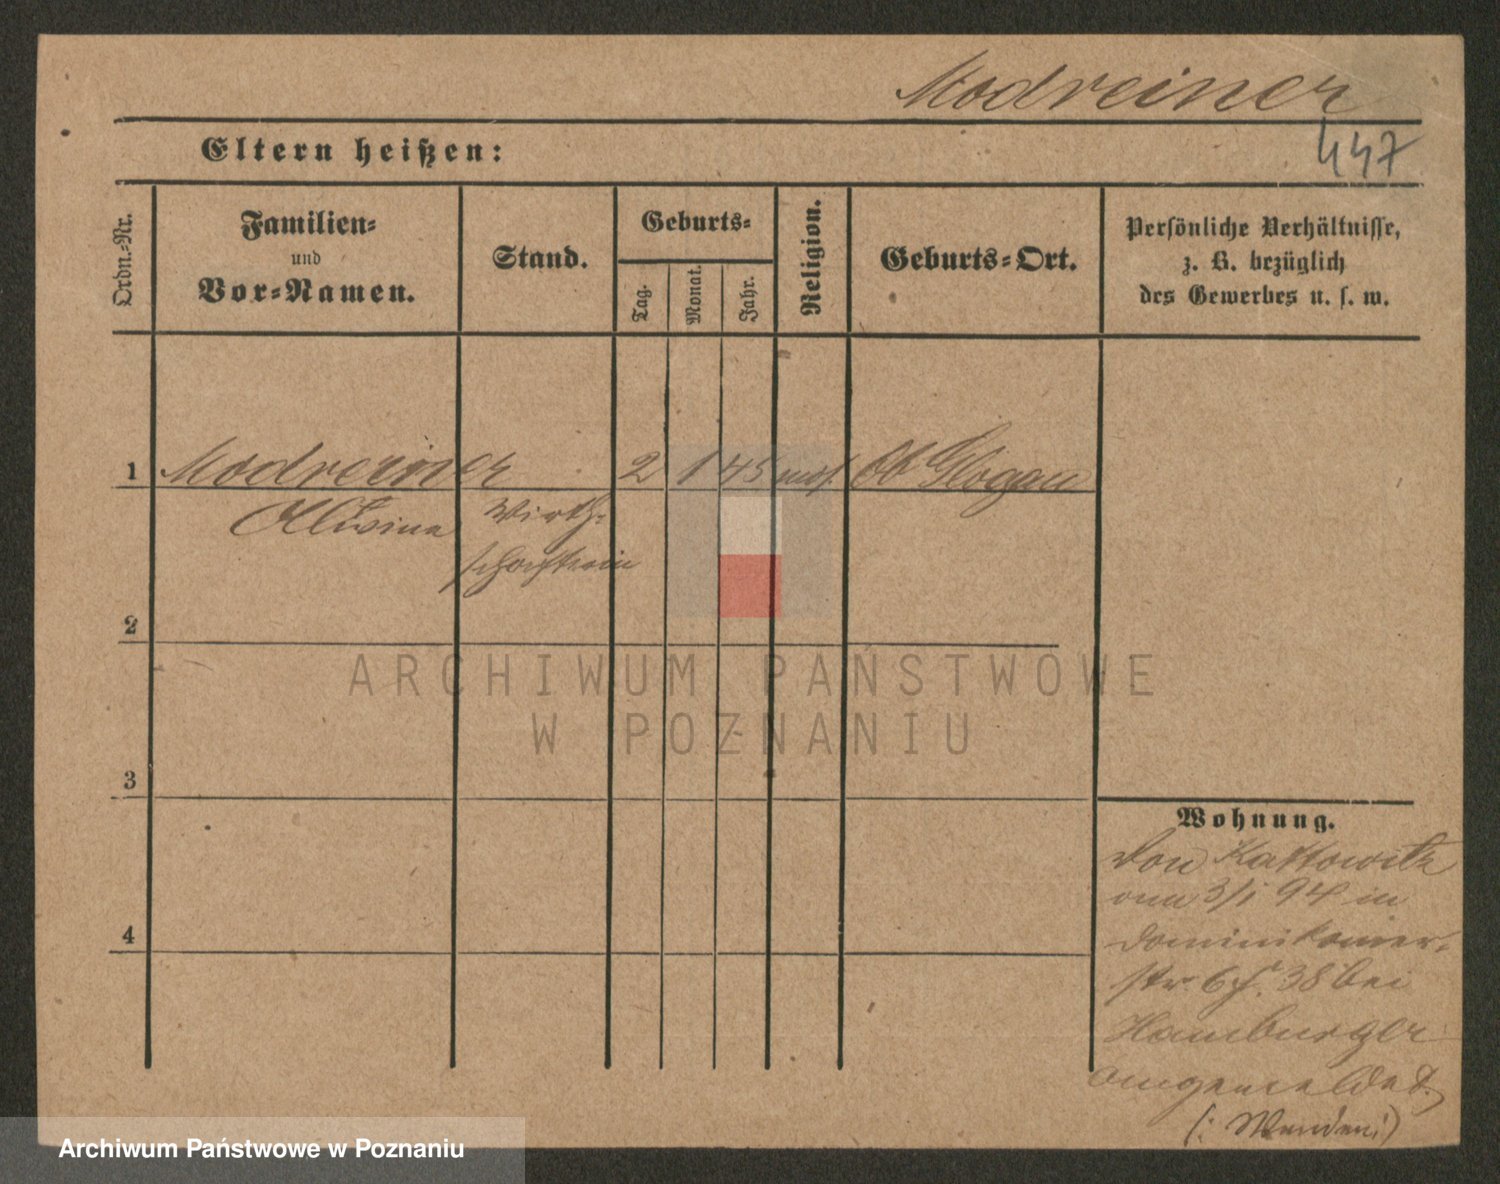 Modreiner
447
Eltern heißen:
Ordn.-Nr.
Familien-
und
Vor-Namen.
Stand.
Geburts-
Tag.
Monat.
Jahr.
Religion.
Geburts-Ort.
Persönliche Verhältnisse,
z. B. bezüglich
des Gewerbes u. s. w.
1
Modreiner
2 1 45 mos. Ob Glogau
Alwina
Wirth-
schafterin
2
3
4
ARCHIWUM PAŃSTWOWE
W POZNANIU
Wohnung.
Von Kattowitz
am 3/1 94 in
Dominikaner-
str. 38 bei
Hamburger
angemeldet.
Archiwum Państwowe w Poznaniu